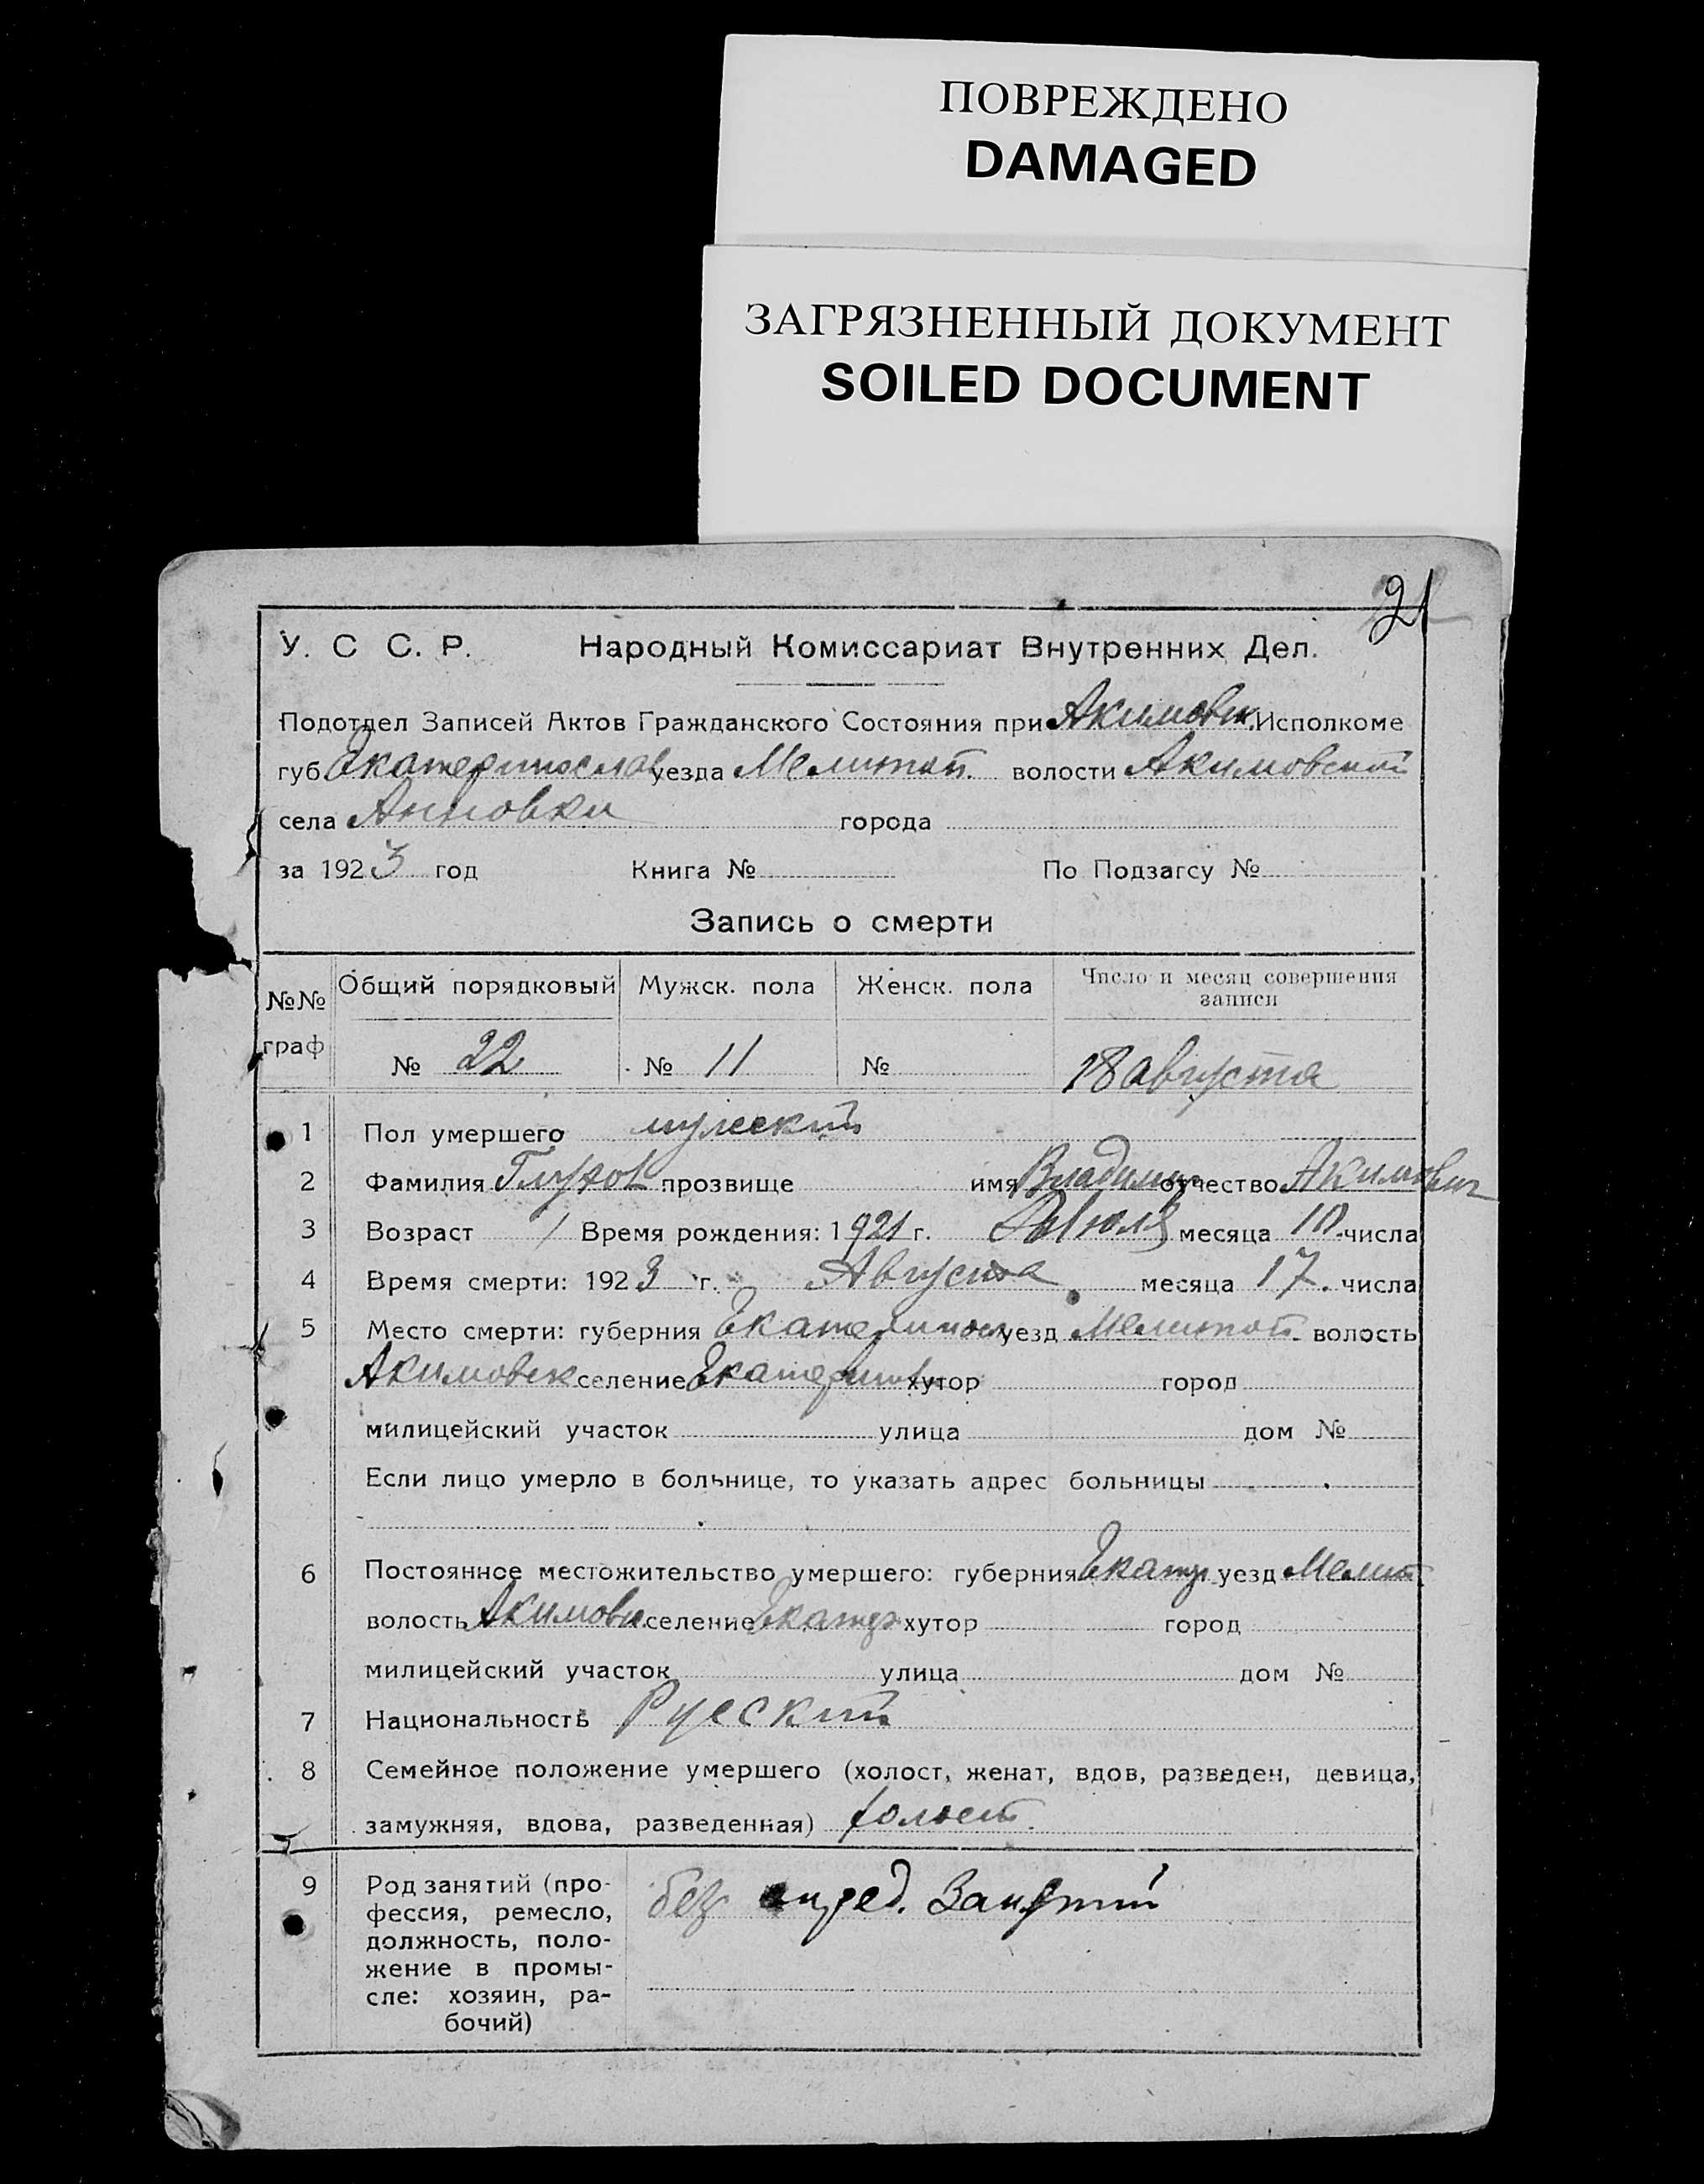 ПОВРЕЖДЕНО
DAMAGED
ЗАГРЯЗНЕННЫЙ ДОКУМЕНТ
SOILED DOCUMENT
21
У. С С. Р. Народный Комиссариат Внутренних Дел.
Подотдел Записей Актов Гражданского Состояния при Акимовск. Исполкоме
губ Екатеринослав уезда Мелитоп. волости Акимовской
села Анновки города
за 1923 год Книга № По Подзагсу №
Запись о смерти
№№ граф Общий порядковый Мужск. пола Женск. пола Число и месяц совершения записи
№ 22 № 11 № 18 августа
1 Пол умершего мужской
2 Фамилия Глухов прозвище имя Владимир отчество Акимович
3 Возраст 1 Время рождения: 1921 г. Июля месяца 10 числа
4 Время смерти: 1923 г. Августа месяца 17. числа
5 Место смерти: губерния Екатериносл уезд Мелитоп. волость
Акимовск селение Екатеринов хутор город
милицейский участок улица дом №
Если лицо умерло в больнице, то указать адрес больницы
6 Постоянное местожительство умершего: губерния Екатер уезд Мелит
волость Акимовск селение Екатер хутор город
милицейский участок улица дом №
7 Национальность Русский
8 Семейное положение умершего (холост, женат, вдов, разведен, девица,
замужняя, вдова, разведенная) холост.
9 Род занятий (про- без опред. Занятий
фессия, ремесло,
должность, поло-
жение в промы-
сле: хозяин, ра-
бочий)